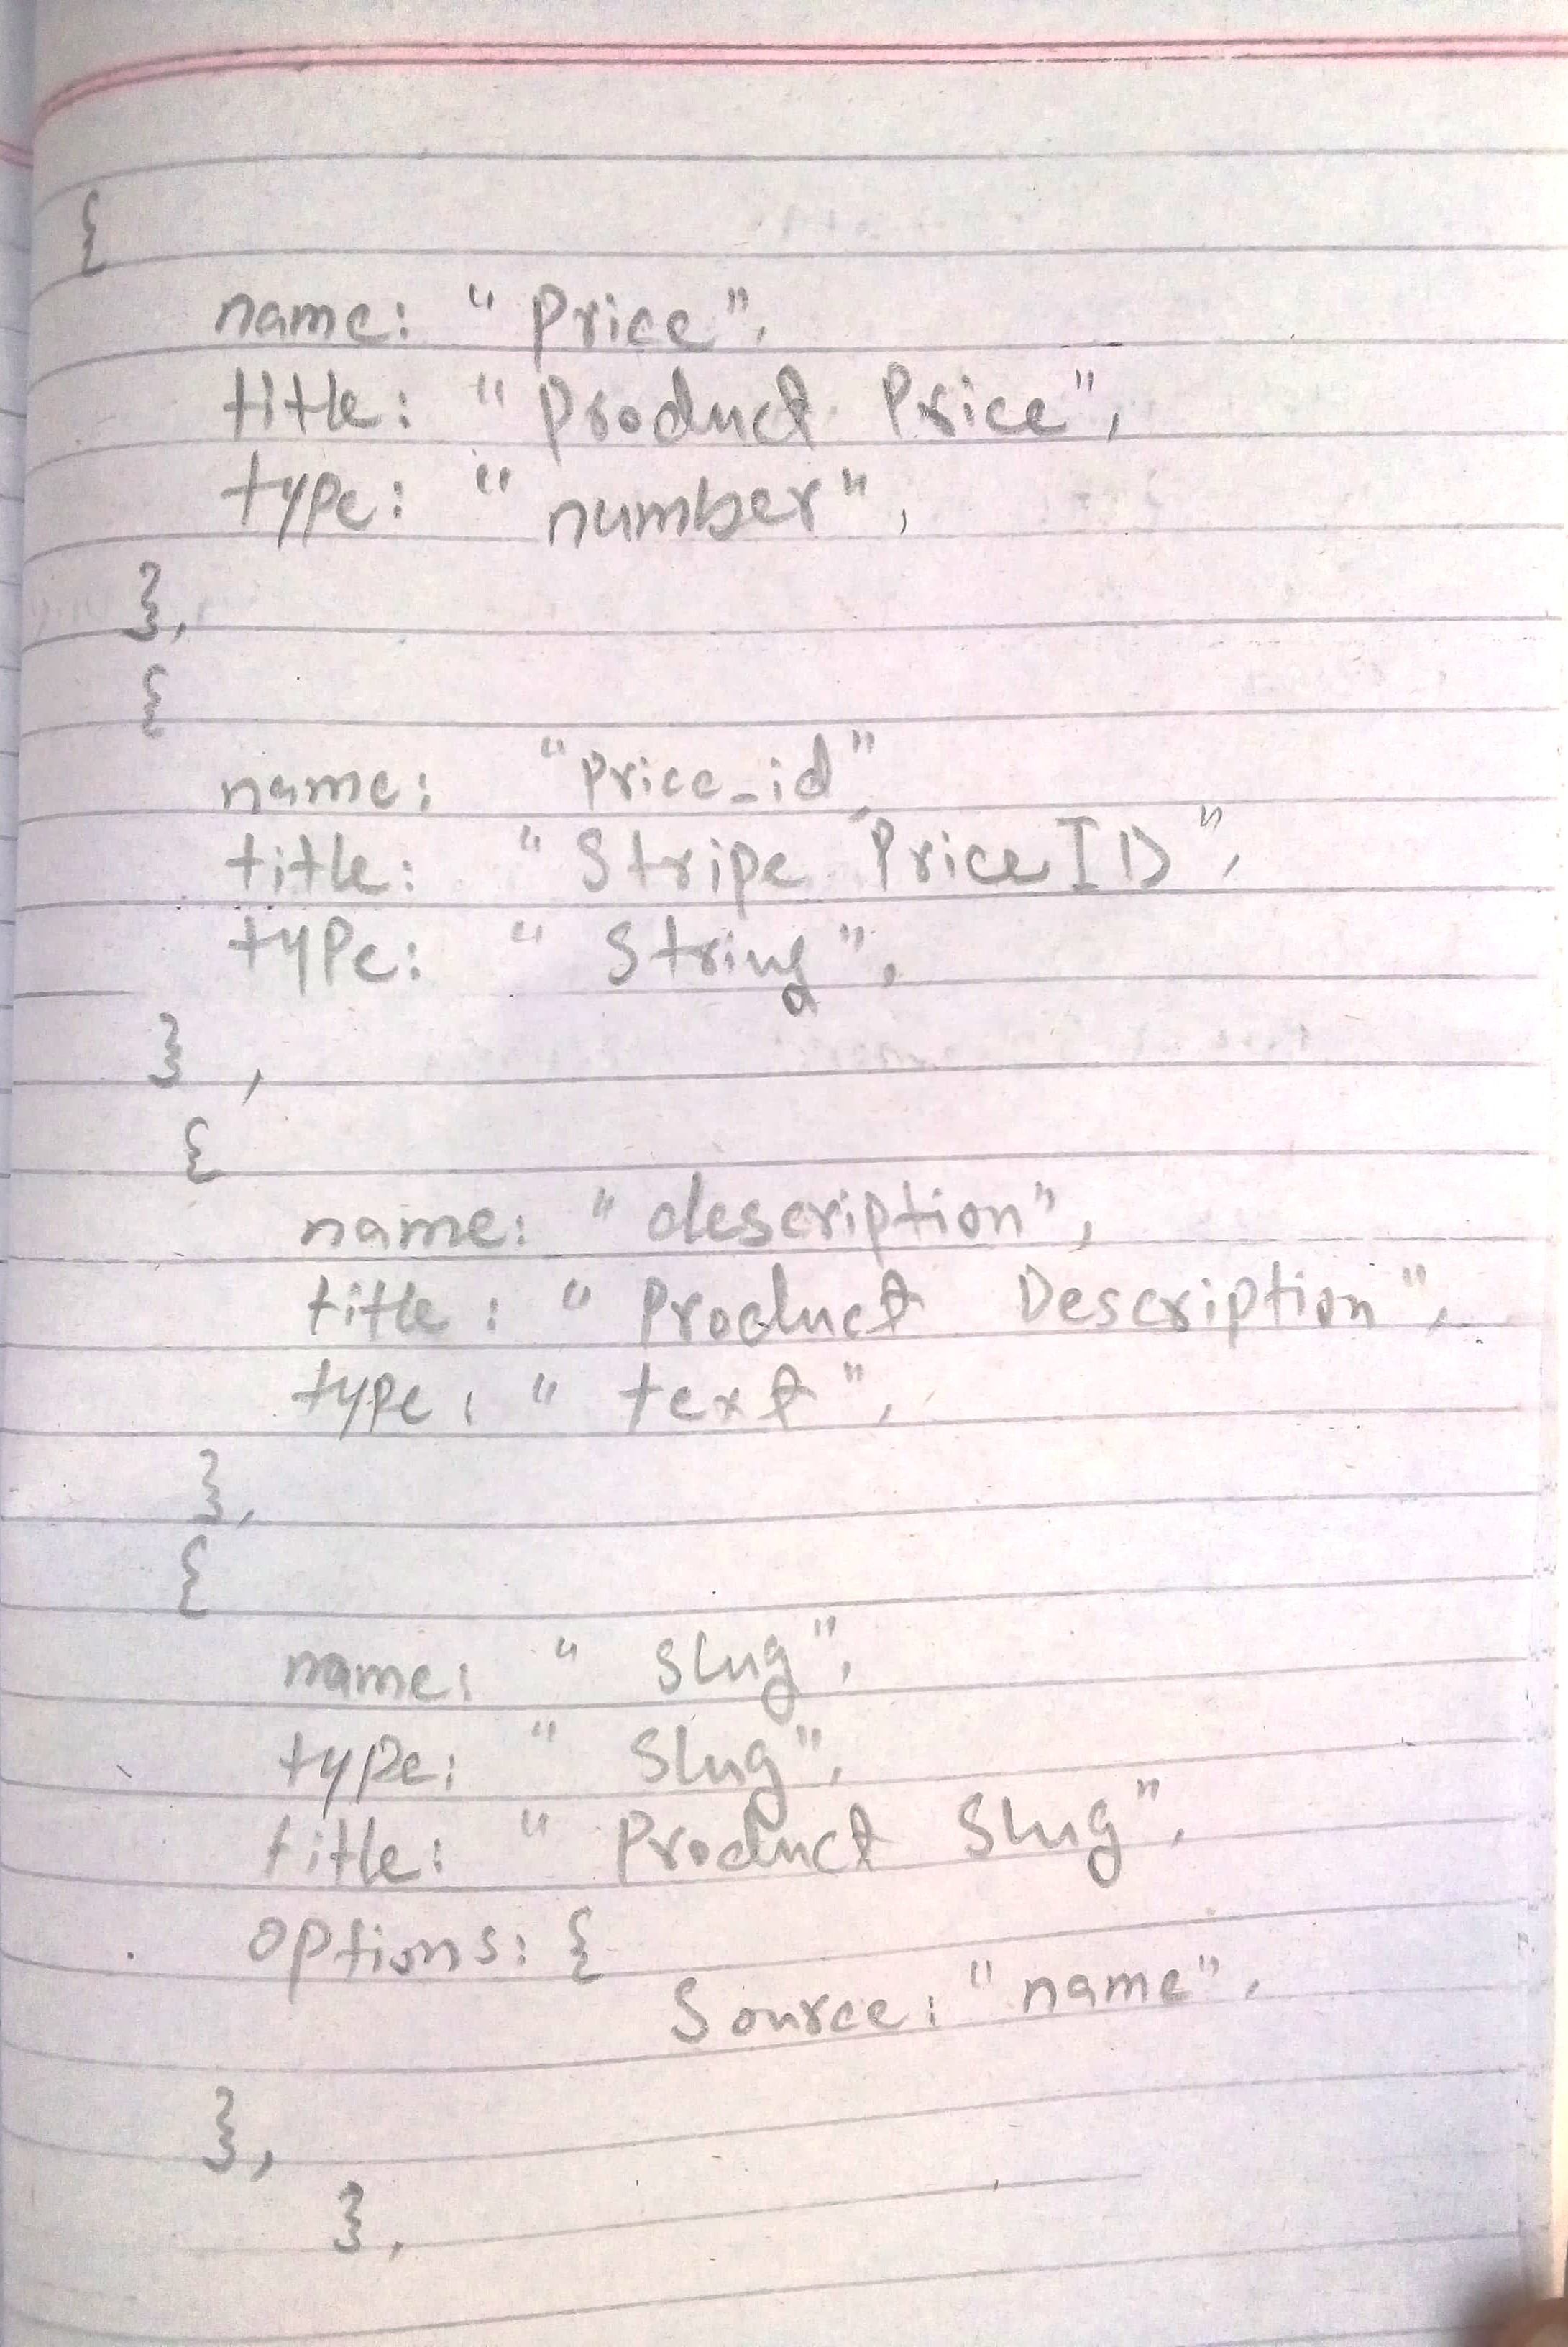 {
name: "price",
title: "Product Price",
type: "number",
},
{
name: "price_id",
title: "Stripe Price ID",
type: "String",
},
{
name: "description",
title: "Product Description",
type: "text",
},
{
name: "slug",
type: "Slug",
title: "Product Slug",
options: {
Source: "name",
},
},